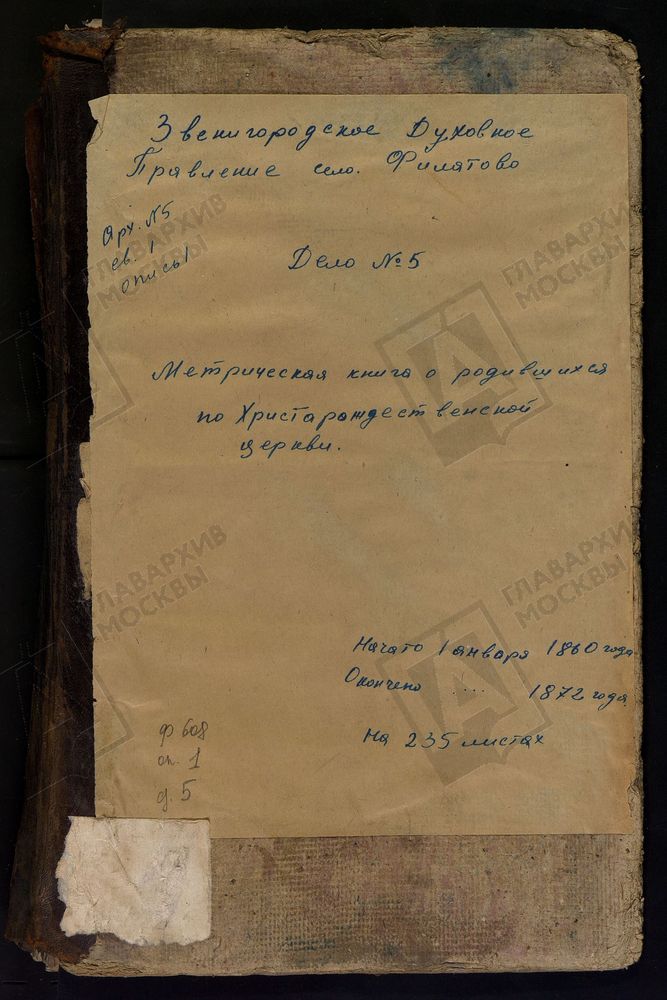 Звенигородское Духовное
Правление село. Филатово
Арх. №5
св. 1
опись 1
Дело №5
Метрическая книга о родившихся
по Христарождественской
церкви.
Начато 1 января 1860 года
Окончено .... 1872 года.
На 235 листах
ф 608
оп. 1
д. 5
ГЛАВАРХИВ
МОСКВЫ
ГЛАВАРХИВ
МОСКВЫ
ГЛАВАРХИВ
МОСКВЫ
ГЛАВАРХИВ
МОСКВЫ